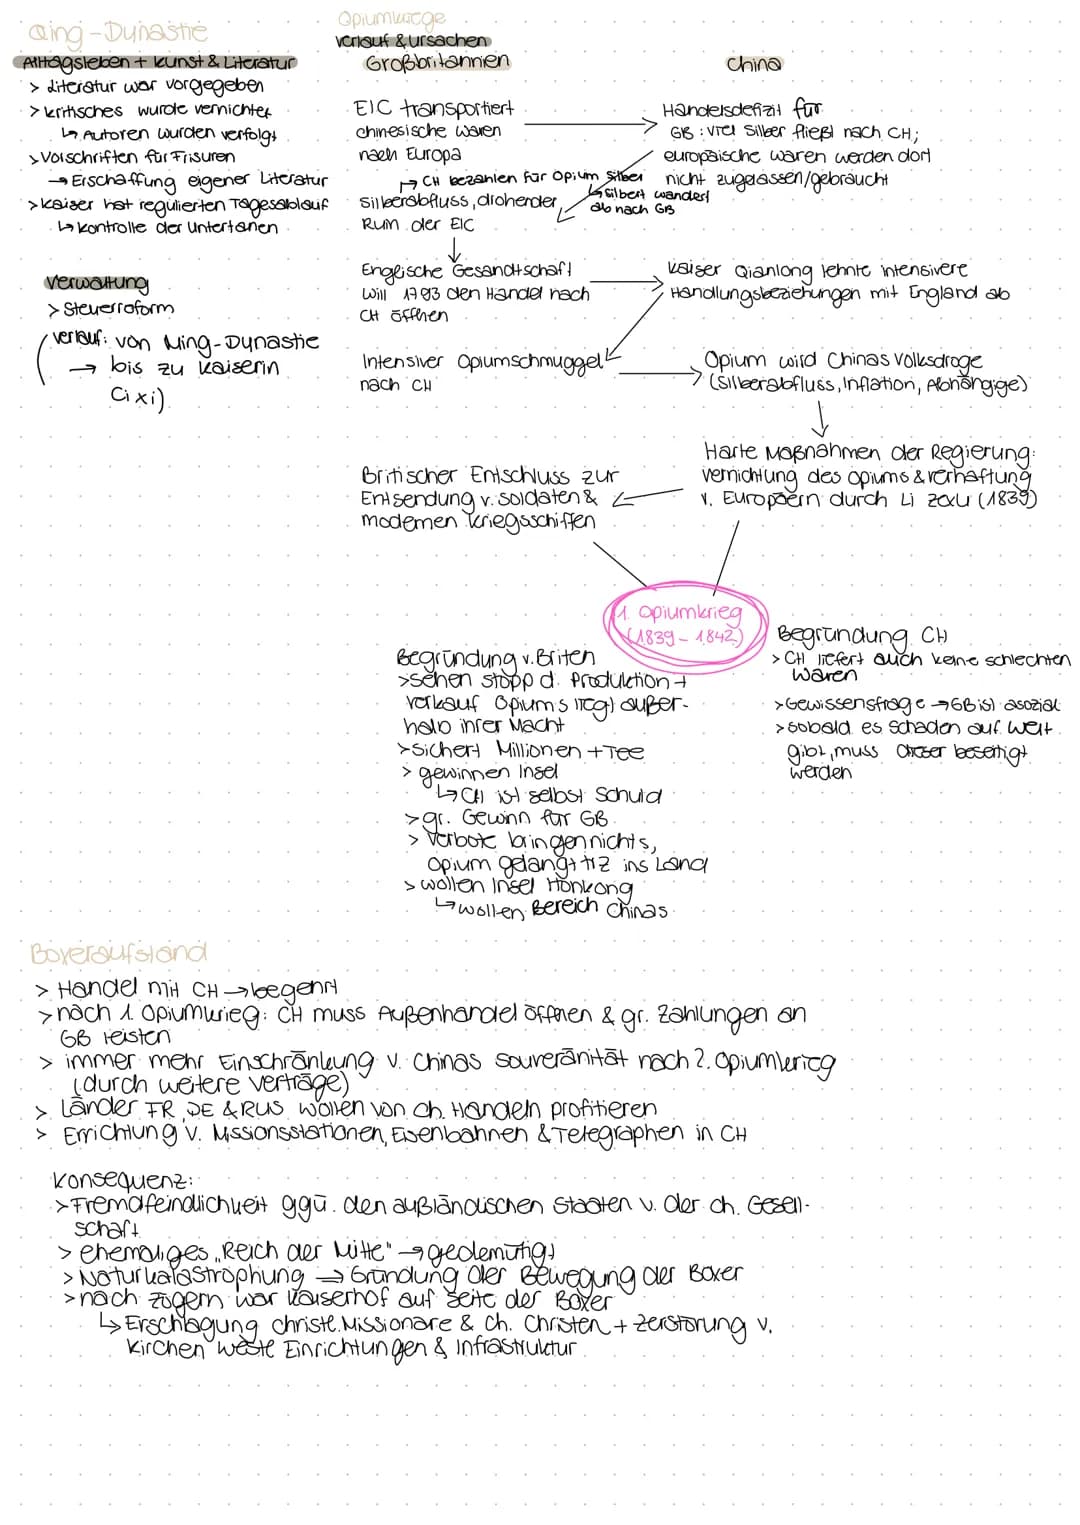 Qing-Dynastie
Alltagsleben + Kunst & Literatur
> Literatur war vorgegeben
> kritisches wurde vernichtet
↳ Autoren wurden verfolgt
> Vorschriften für Frisuren
→ Erschaffung eigener Literatur
> Kaiser hat regulierten Tagesablauf
↳ Kontrolle der Untertanen
Verwaltung
> Steuerroform
(verlauf: von Ming-Dynastie
→ bis zu Kaiserin
Cixi)
Opiumkriege
Verlauf & Ursachen
Großbritannien
China
EIC transportiert
chinesische Waren
nach Europa
Handelsdefizit für
GB: viel Silber fließt nach CH;
europäische Waren werden dort
nicht zugelassen/gebraucht
↳ CH bezahlen für Opium Silber
↳ Silbert wandert
ab nach GB
Silberabfluss, drohender
Ruin der EIC
Englische Gesandtschaft
will 1793 den Handel nach
CH öffnen
Kaiser Qianlong lehnte intensivere
Handlungsbeziehungen mit England ab
Intensiver Opiumschmuggel
nach CH
Opium wird Chinas Volksdroge
(Silberabfluss, Inflation, Abhängige)
Harte Maßnahmen der Regierung:
Vernichtung des Opiums & Verhaftung
v. Europäern durch Li zexu (1839)
Britischer Entschluss zur
Entsendung v. Soldaten &
modernen Kriegsschiffen
1. Opiumkrieg
(1839-1842)
Begründung v. Briten
> sehen stopp d. Produktion +
Verkauf Opiums liegt außer-
halb ihrer Macht
> sichert Millionen + Tee
> gewinnen Insel
↳ CH ist selbst Schuld
> gr. Gewinn für GB
> Verbote bringen nichts,
Opium gelangt trz ins Land
> wollen Insel Honkong
↳ wollen Bereich Chinas
Begründung CH
> CH liefert auch keine schlechten
Waren
> Gewissensfrage → GB ist asozial
> sobald es Schaden auf Welt
gibt, muss dieser beseitigt
werden
Boxeraufstand
> Handel mit CH → begehrt
> nach 1. Opiumkrieg: CH muss Außenhandel öffnen & gr. Zahlungen an
GB leisten
> immer mehr Einschränkung v. Chinas Souveränität nach 2. Opiumkrieg
(durch weitere Verträge)
> Länder FR, DE & RUS wollen von ch. Handeln profitieren
> Errichtung v. Missionsstationen, Eisenbahnen & Telegraphen in CH
Konsequenz:
> Fremdfeindlichkeit ggü. den außländischen Staaten v. der ch. Gesell-
schaft
> ehemaliges „Reich der Mitte" → gedemütigt
> Naturkatastrophung → Gründung der Bewegung der Boxer
> nach zögern war Kaiserhof auf Seite der Boxer
↳ Erschlagung christl. Missionare & ch. Christen + Zerstörung v.
Kirchen westl Einrichtungen & Infrastruktur